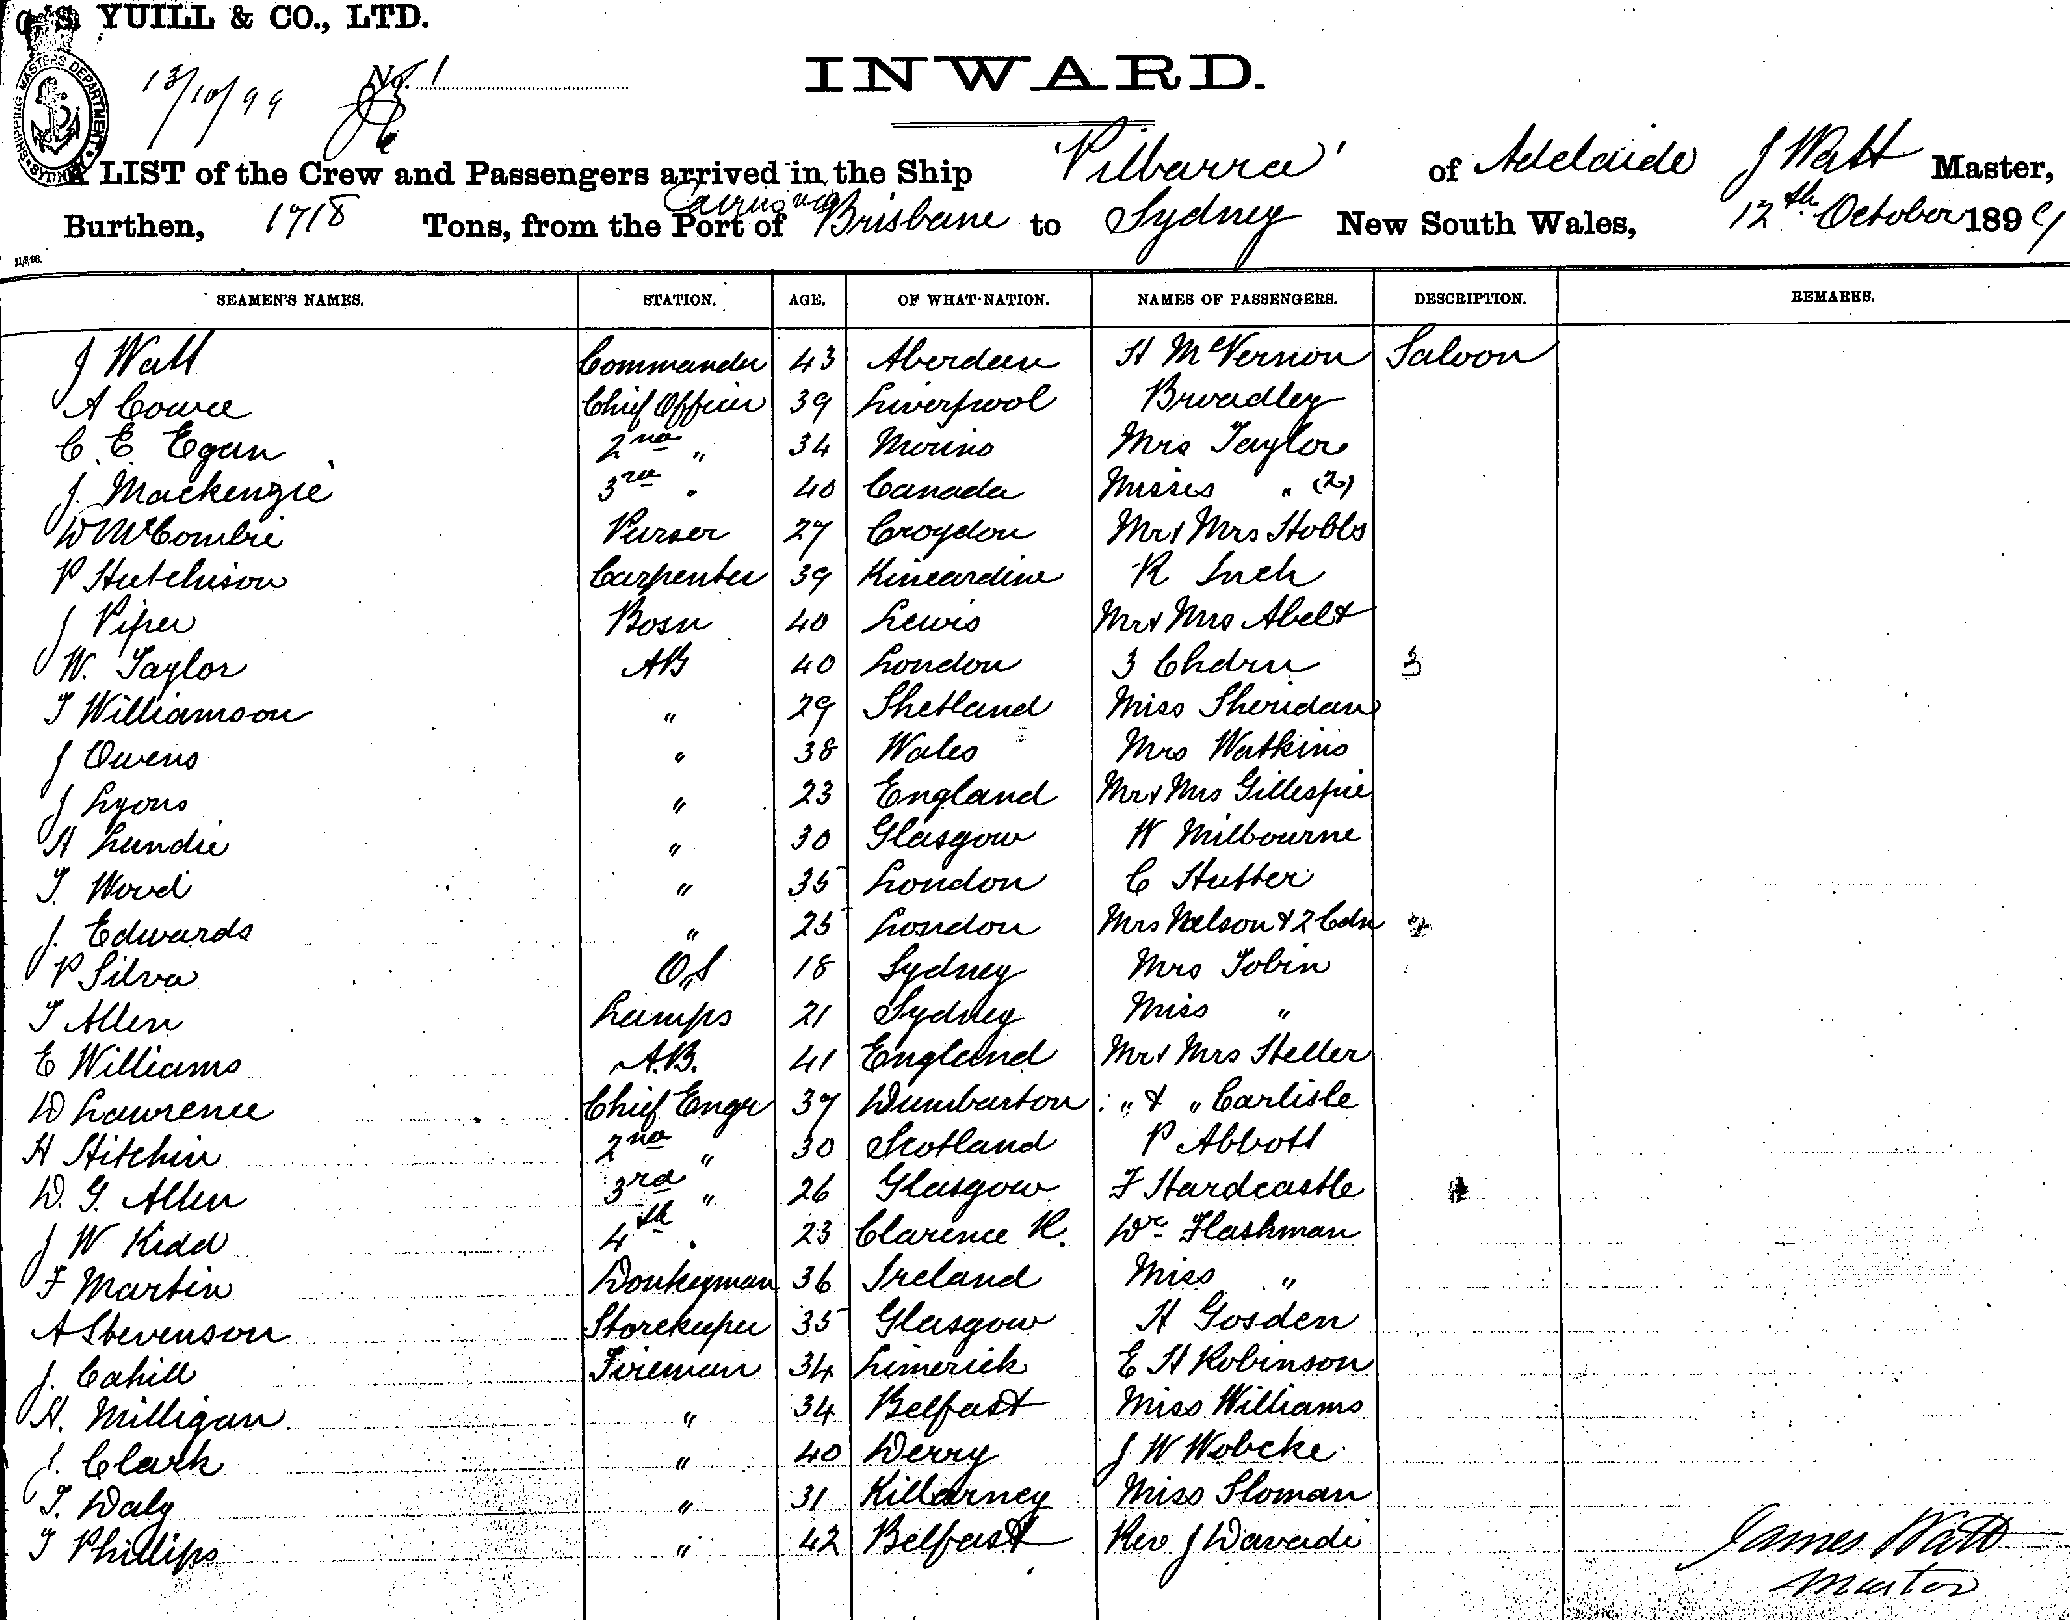 G. S. YUILL & CO., LTD.
SHIPPING MASTERS DEPARTMENT SYDNEY
13/10/99 No. 1
INWARD.
A LIST of the Crew and Passengers arrived in the Ship 'Pilbarra' of Adelaide J Watt Master,
Cairns via
Burthen, 1718 Tons, from the Port of Brisbane to Sydney New South Wales, 12th October 1899
SEAMEN'S NAMES. STATION. AGE. OF WHAT NATION. NAMES OF PASSENGERS. DESCRIPTION. REMARKS.
J Watt Commander 43 Aberdeen H McVernon Saloon
A Cowie Chief Officer 39 Liverpool Broadley
C. E. Egan 2nd " 34 Mrs Taylor
J. Mackenzie 3rd " 40 Canada Misses " (2)
D McCombie Purser 27 Croydon Mr & Mrs Hobbs
P Hutchison Carpenter 39 Kincardine R Inch
J Piper Bosn 40 Lewis Mr & Mrs Abelt
W. Taylor AB 40 London 3 Chdrn 3
T Williamson " 29 Shetland Miss Sheridan
J Owens " 38 Wales Mrs Watkins
J Lyons " 23 England Mr & Mrs Gillespie
H Lundie " 30 Glasgow W Milbourne
T. Wood " 35 London C Hutter
J. Edwards " 25 London Mrs Nelson & 2 Cdn 2
P Silva O.S 18 Sydney Mrs Tobin
T Allen Lamps 21 Sydney Miss "
E Williams A.B. 41 England Mr & Mrs Heller
D Lawrence Chief Engr 37 Dumbarton " & " Carlisle
H Hitchin 2nd " 30 Scotland P Abbott
D. G. Allen 3rd " 26 Glasgow F Hardcastle
J W Kidd 4th " 23 Clarence R. Dr Flashman
F Martin Donkeyman 36 Ireland Miss "
A Stevenson Storekeeper 35 Glasgow H Gosden
J. Cahill Fireman 34 Limerick E H Robinson
H. Milligan " 34 Belfast Miss Williams
J. Clark " 40 Derry J W Wobcke
T. Daly " 31 Killarney Miss Sloman
T Phillips " 42 Belfast Rev J Davadi
James Watt
Master